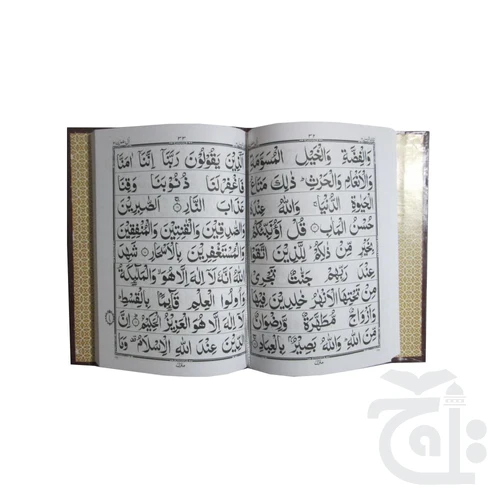 ٣٢
وَالْفِضَّةِ وَالْخَيْلِ الْمُسَوَّمَةِ
وَالْاَنْعَامِ وَالْحَرْثِ ذٰلِكَ مَتَاعُ
الْحَيٰوةِ الدُّنْيَا وَاللّٰهُ عِنْدَهٗ
حُسْنُ الْمَاٰبِ قُلْ اَؤُنَبِّئُكُمْ
بِخَيْرٍ مِّنْ ذٰلِكُمْ لِلَّذِيْنَ اتَّقَوْا
عِنْدَ رَبِّهِمْ جَنّٰتٌ تَجْرِيْ
مِنْ تَحْتِهَا الْاَنْهٰرُ خٰلِدِيْنَ فِيْهَا
وَاَزْوَاجٌ مُّطَهَّرَةٌ وَّرِضْوَانٌ
مِّنَ اللّٰهِ وَاللّٰهُ بَصِيْرٌ بِالْعِبَادِ
٣٣
اَلَّذِيْنَ يَقُوْلُوْنَ رَبَّنَا اِنَّنَا اٰمَنَّا
فَاغْفِرْ لَنَا ذُنُوْبَنَا وَقِنَا
عَذَابَ النَّارِ اَلصّٰبِرِيْنَ
وَالصّٰدِقِيْنَ وَالْقٰنِتِيْنَ وَالْمُنْفِقِيْنَ
وَالْمُسْتَغْفِرِيْنَ بِالْاَسْحَارِ شَهِدَ
اللّٰهُ اَنَّهٗ لَا اِلٰهَ اِلَّا هُوَ وَالْمَلٰٓئِكَةُ
وَاُولُوا الْعِلْمِ قَآئِمًا بِالْقِسْطِ
لَا اِلٰهَ اِلَّا هُوَ الْعَزِيْزُ الْحَكِيْمُ اِنَّ
الدِّيْنَ عِنْدَ اللّٰهِ الْاِسْلَامُ وَمَا